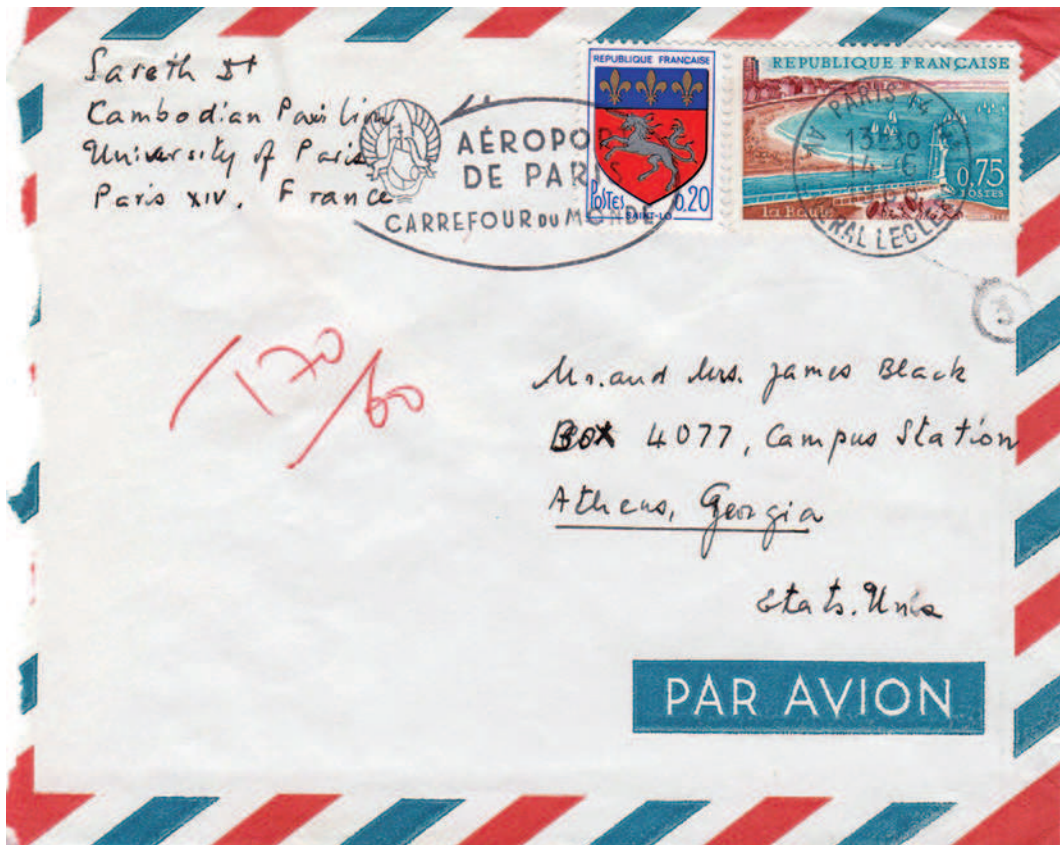 Sareth
Cambodian Pavilion
University of Paris
Paris XIV. France
AÉROPORT
DE PARIS
CARREFOUR DU MONDE
REPUBLIQUE FRANÇAISE
POSTES 0.20
SAINT-LO
REPUBLIQUE FRANÇAISE
0,75
POSTES
la Baule
PARIS 14
13-30
14-6
RAL LECLERC
3
T 70/60
Mr. and Mrs. James Black
Box 4077, Campus Station
Athens, Georgia
Etats. Unis
PAR AVION